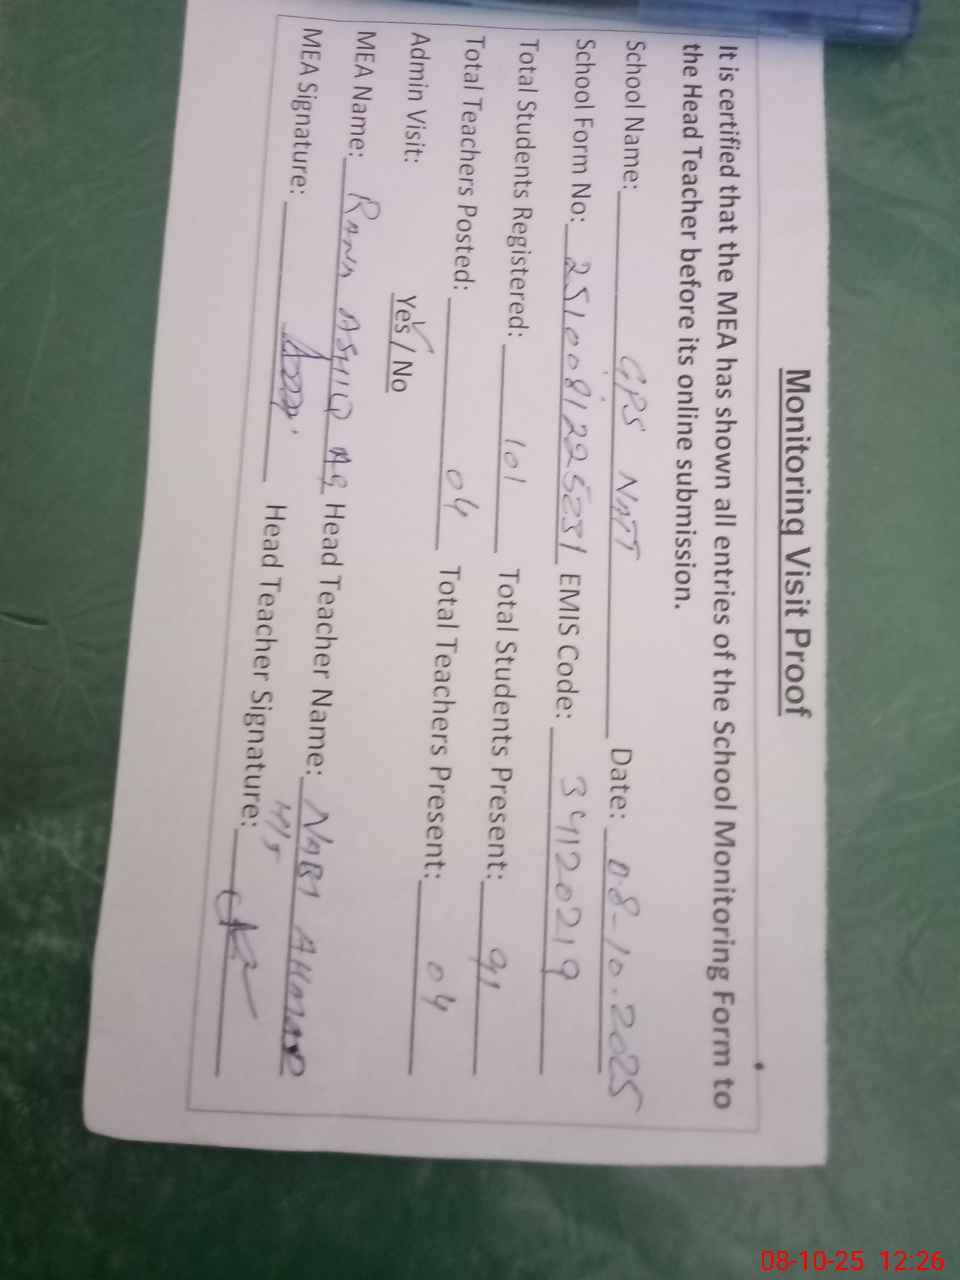 Monitoring Visit Proof
It is certified that the MEA has shown all entries of the School Monitoring Form to
the Head Teacher before its online submission.
School Name: GPS NATT Date: 08-10-2025
School Form No: 2510081225231 EMIS Code: 34120219
Total Students Registered: 101 Total Students Present: 91
Total Teachers Posted: 04 Total Teachers Present: 04
Admin Visit: Yes / No
MEA Name: RANA ASHIQ Head Teacher Name: NABI AHMAD
MEA Signature: Head Teacher Signature:
08-10-25 12:26